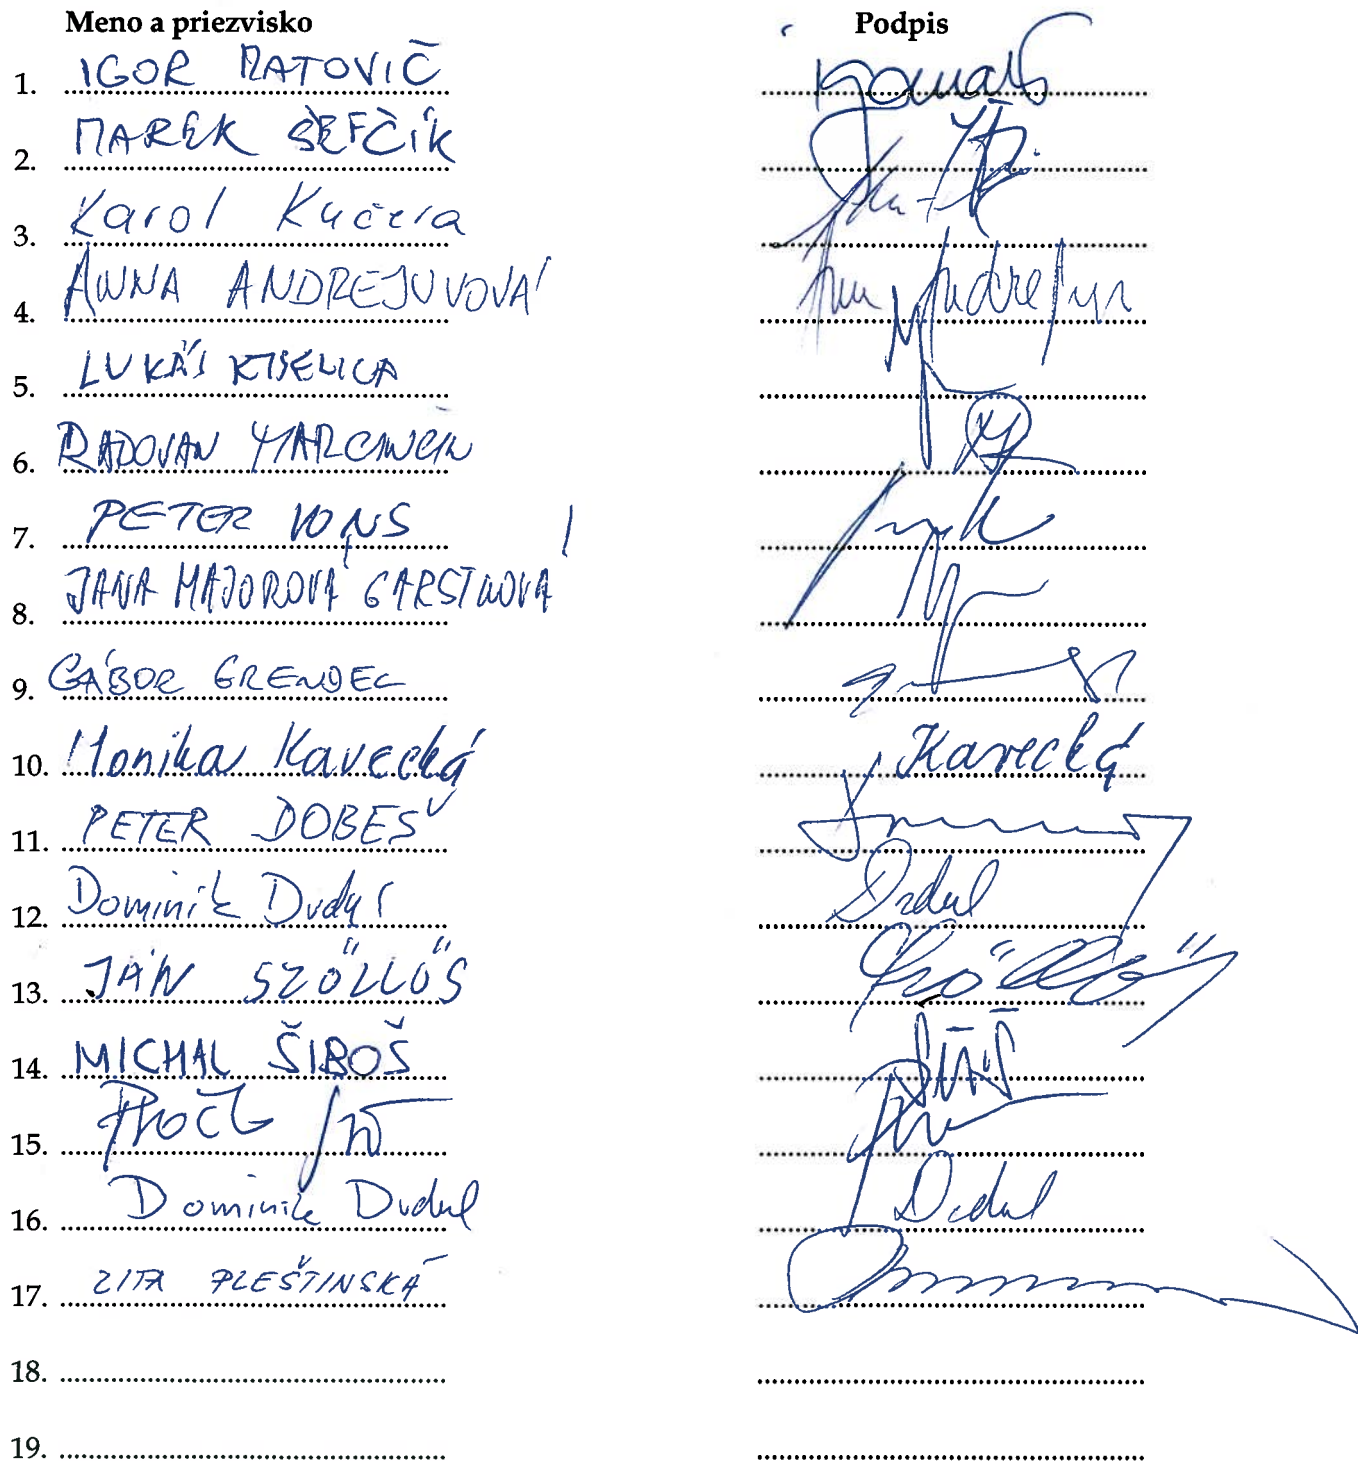 Meno a priezvisko Podpis
1. IGOR MATOVIČ
2. MAREK ŠEFČÍK
3. Karol Kučera
4. ANNA ANDREJUVOVÁ
5. LUKÁŠ KISELICA
6. RADOVAN MARCINČIN
7. PETER VONS
8. JANA MAJOROVÁ GARSTKOVÁ
9. GÁBOR GRENDEL
10. Monika Kavecká Kavecká
11. PETER DOBEŠ
12. Dominik Drdul Drdul
13. JÁN SZÖLLŐS Szöllős
14. MICHAL ŠIBOŠ
15.
16. Dominik Drdul Drdul
17. ZITA PLEŠTINSKÁ
18.
19.